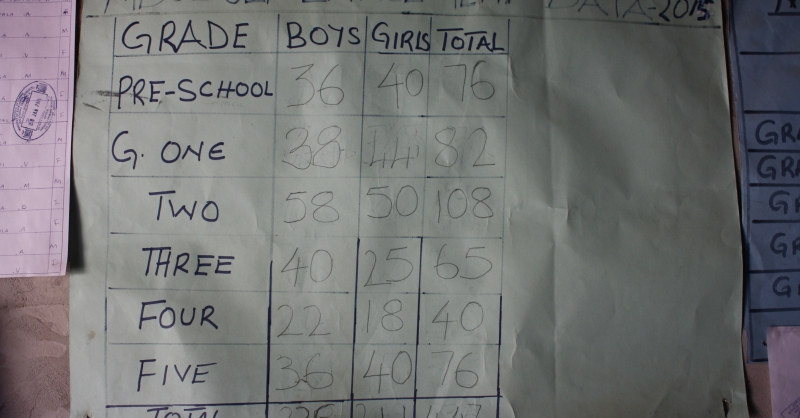 DATA-2015
GRADE BOYS GIRLS TOTAL
PRE-SCHOOL 36 40 76
G. ONE 38 44 82
TWO 58 50 108
THREE 40 25 65
FOUR 22 18 40
FIVE 36 40 76
TOTAL
GRA
GRA